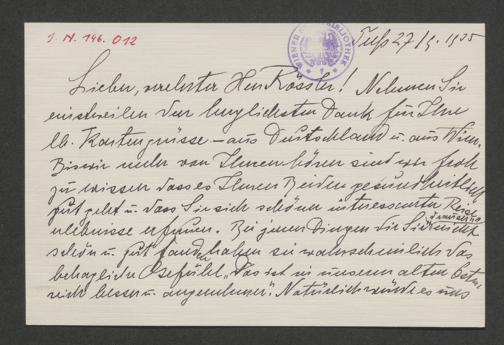 I. N. 146.012
WIENER BIBLIOTHEK
Telfs 27/9. 1935
Lieber, verehrter Herr Rössler! Nehmen Sie
einstweilen den herzlichsten Dank für Ihre
lb. Kartengrüsse – aus Deutschland u. aus Wien.
Bis wir mehr von Ihnen hören sind wir froh
zu wissen dass es Ihnen Beiden gesundheitlich
gut geht u. dass Sie sich schöner interessanter Reise-
erlebnisse erfreuen. Bei jenen Dingen die Sie nicht
draussen
schön u. gut fanden haben sie wahrscheinlich das
behagliche Gefühl „Das ist in unserem alten Öster-
reich besser u. angenehmer." Natürlich würde es uns